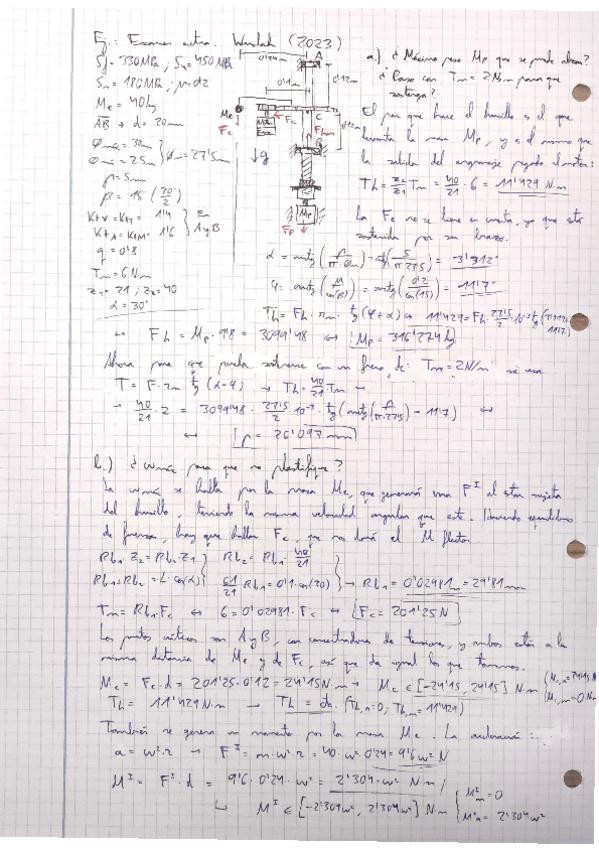 Ej.: Examen extra. Winslab (2023)
Sy = 330MPa, Su = 450MPa
Sn = 180MPa; μ=0'2
Mc = 40kg
AB → d = 20mm
p = 5mm
β = 15 (30/2)
q = 0'8
Tm = 6N·m
z1 = 21; z2 = 40
α = 30°
a.) ¿Máximo peso Mp que se puede alzar?
¿Paso con Tm = 2Nm para que
sostenga?
El par que hace el husillo es el que
levanta la masa Mp, y es el mismo que
la salida del engranaje pegado al motor:
Th = z2/z1 Tm = 40/21 · 6 = 11'429 N·m
La Fc no se tiene en cuenta, ya que está
sostenida por su brazo.
Th = Fh · rm · tg (φ+α)
↔ Fh = Mp · 9'8 = 3099'48 ↔ Mp = 316'274kg
Ahora para que pueda sostenerse con un freno de: Tm = 2N/m se usa
T = F · rm tg (α-φ) → Th = 40/21 · Tm →
→ 40/21 · 2 = 3099'48 · 27'5/2 · 10⁻³ · tg (arctg (p/π·27'5) - 11'7) ↔
↔ p = 26'097 mm
b.) ¿ωmáx para que no plastifique?
La ωmáx se halla por la masa Mc, que generará una F^I al estar sujeta
del husillo, teniendo la misma velocidad angular que este. Haciendo equilibrio
de fuerzas, hay que hallar Fc, que nos dará el M flector.
Rb1 · z2 = Rb2 · z1 } Rb2 = Rb1 · 40/21
Rb1 + Rb2 = L · cos(α) } 61/21 Rb1 = 0'1 · cos(30) → Rb1 = 0'02981m = 29'81mm
Tm = Rb1 · Fc ↔ 6 = 0'02981 · Fc → Fc = 201'25N
Los puntos críticos son A y B, con concentradores de tensiones, y ambos están a la
misma distancia de Mc y de Fc, así que da igual los que tomemos.
Mc = Fc · d = 201'25 · 0'12 = 24'15N·m → Mc ∈ [-24'15, 24'15] N·m
Th = 11'429N·m → Th = cte. (Th,a=0; Th,m=11'429)
También se genera un momento por la masa Mc. La aceleración:
a = ω²·r → F^I = m·ω²·r = 40·ω²·0'24 = 9'6ω² N
M^I = F^I · d = 9'6 · 0'24 · ω² = 2'304·ω² N·m
↳ M^I ∈ [-2'304ω², 2'304ω²] N·m { M^I m = 0
M^I a = 2'304ω²